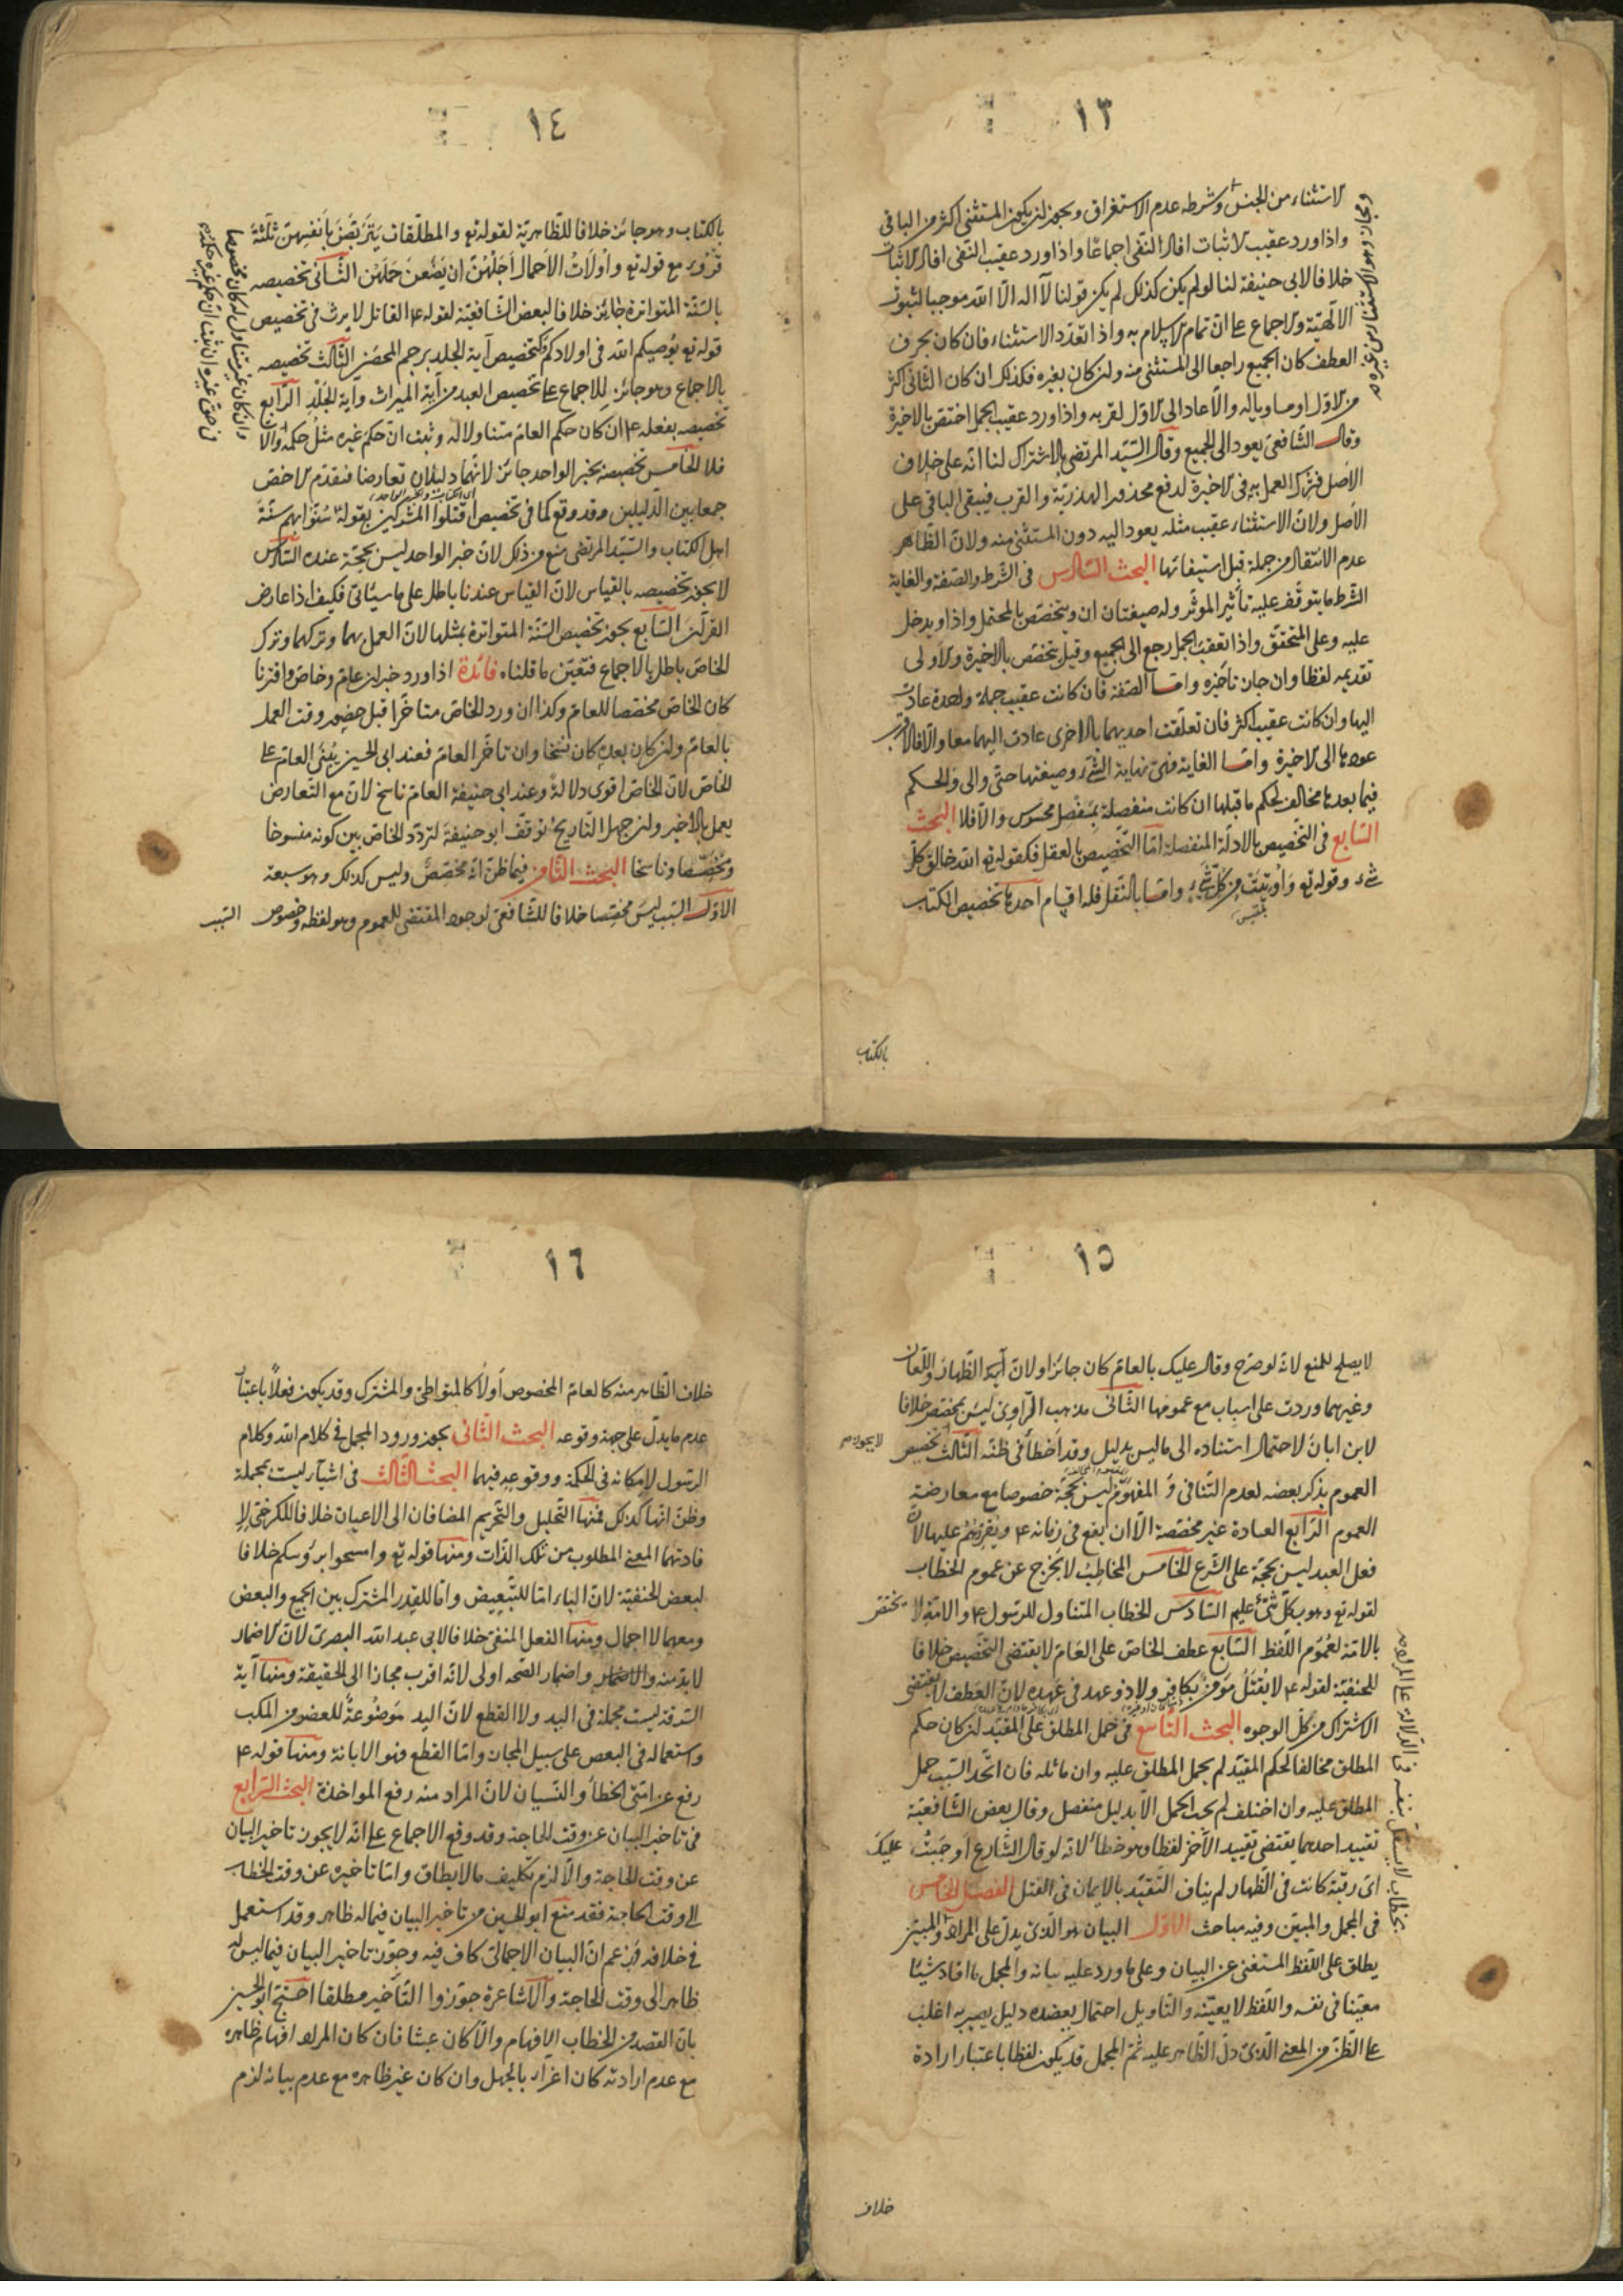 ١٣
الاستثناء من الجنس وشرطه عدم الاستغراق ويجوز ان يكون المستثنى اكثر من الباقي
واذا ورد عقيب الاثبات افاد النفى اجماعا واذا ورد عقيب النفى افاد الاثبات
خلافا لابى حنيفة لنا لو لم يكن كذلك لم يكن قولنا لا اله الا الله موجبا لثبوت
الالهية والاجماع على ان تمام الاسلام به واذا تعدد الاستثناء فان كان بحرف
العطف كان الجميع راجعا الى المستثنى منه وان كان بغيره فكذلك ان كان الثانى اكثر
من الاول او مساويا له والا عاد الى الاول لقربه واذا ورد عقيب الجمل اختص بالاخيرة
وقال الشافعى يعود الى الجميع وقال السيد المرتضى بالاشتراك لنا انه على خلاف
الاصل فنترك العمل به فى الاخيرة لدفع محذور الهذرية والقرب فيبقى الباقى على
الاصل ولان الاستثناء عقيب مثله يعود اليه دون المستثنى منه ولان الظاهر
عدم الانتقال من جملة قبل استيفائها البحث السادس فى الشرط والصفة والغاية
الشرط ما يتوقف عليه تأثير المؤثر وله صيغتان ان ويختص بالمحتمل واذا ويدخل
عليه وعلى المتحقق واذا تعقب الجمل رجع الى الجميع وقيل يختص بالاخيرة والاولى
تقديمه لفظا وان جاز تأخيره واما الصفة فان كانت عقيب جملة واحدة عادت
اليها وان كانت عقيب اكثر فان تعلقت احديهما بالاخرى عادت اليهما معا والا فالاقرب
عودها الى الاخيرة واما الغاية فهى نهاية الشئ وصيغتها حتى والى والحكم
فيما بعدها مخالف لحكم ما قبلها ان كانت منفصلة بمفصل محسوس والا فلا البحث
السابع فى التخصيص بالادلة المنفصلة اما التخصيص بالعقل فكقوله تع الله خالق كل
شئ وقوله تع واوتيت من كل شئ واما بالنقل فله اقسام احدها تخصيص الكتاب
بلقيس
بالكتاب
١٤
بالكتاب وهو جائز خلافا للظاهرية لقوله تع والمطلقات يتربصن بانفسهن ثلثة
قروء مع قوله تع واولات الاحمال اجلهن ان يضعن حملهن الثانى تخصيصه
بالسنة المتواترة جائز خلافا لبعض الشافعية لقوله ع القاتل لا يرث فى تخصيص
قوله تع يوصيكم الله فى اولادكم وكتخصيص آية الجلد برجم المحصن الثالث تخصيصه
بالاجماع وهو جائز للاجماع على تخصيص العبد من آية الميراث وآية الجلد الرابع
تخصيصه بفعله ع ان كان حكم العام متناولا له وثبت ان حكم غيره مثل حكمه والا
فلا الخامس تخصيصه بخبر الواحد جائز لانهما دليلان تعارضا فيقدم الاخص
جمعا بين الدليلين وقد وقع كما فى تخصيص اقتلوا المشركين بقوله سنوا بهم سنة
اهل الكتاب والسيد المرتضى منع من ذلك لان خبر الواحد ليس بحجة عنده السادس
لا يجوز تخصيصه بالقياس لان القياس عندنا باطل على ما سيأتى فكيف اذا عارض
القرآن السابع يجوز تخصيص السنة المتواترة بمثلها لان العمل بهما وتركهما وترك
الخاص باطل بالاجماع فتعين ما قلناه فائدة اذا ورد خبران عام وخاص واقترنا
كان الخاص مخصصا للعام وكذا ان ورد الخاص متأخرا قبل حضور وقت العمل
بالعام وان كان بعده كان نسخا وان تاخر العام فعند ابى الحسين يبنى العام على
الخاص لان الخاص اقوى دلالة وعند ابى حنيفة العام ناسخ لان مع التعارض
يعمل بالأخير وان جهل التاريخ توقف ابو حنيفة لتردد الخاص بين كونه منسوخا
ومخصصا وناسخا البحث الثامن فيما ظن انه مخصص وليس كذلك وهو سبعة
الاول السبب ليس مخصصا خلافا للشافعى لوجود المقتضى للعموم وهو لفظه وخصوص السبب
١٥
لا يصلح للمنع لانه لو صرح وقال عليك بالعام كان جائزا ولان آية الظهار واللعان
وغيرهما وردت على اسباب مع عمومها الثانى مذهب الراوى ليس بمخصص خلافا
لابن ابان لاحتمال استناده الى ما ليس بدليل وقد أخطأ فى ظنه الثالث لا يجوز تخصيص
العموم بذكر بعضه لعدم التنافى والمفهوم ليس بحجة خصوصا مع معارضة
العموم الرابع العادة غير مخصصة الا ان يقع فى زمانه ع ويقررهم عليها لان
فعل العبد ليس بحجة على الشرع الخامس المخاطب لا يخرج عن عموم الخطاب
لقوله تع وهو بكل شئ عليم السادس الخطاب المتناول للرسول ع والامة لا يختص
بالامة لعموم اللفظ السابع عطف الخاص على العام لا يقتضى التخصيص خلافا
للحنفية لقوله ع لا يقتل مؤمن بكافر ولا ذو عهد فى عهده لان العطف لا يقتضى
الاشتراك من كل الوجوه البحث التاسع فى حمل المطلق على المقيد ان كان حكم
المطلق مخالفا لحكم المقيد لم يحمل المطلق عليه وان ماثله فان اتحد السبب حمل
المطلق عليه وان اختلف لم يجب الحمل الا بدليل منفصل وقال بعض الشافعية
تقييد احدهما يقتضى تقييد الآخر لفظا وهو خطأ لانه لو قال الشارع اوجبت عليك
اى رقبة كانت فى الظهار لم يناف التقييد بالايمان فى القتل الفصل الخامس
فى المجمل والمبين وفيه مباحث الاول البيان هو الذى يدل على المراد والمبين
يطلق على اللفظ المستغنى عن البيان وعلى ما ورد عليه بيانه والمجمل ما افاد شيئا
معينا فى نفسه واللفظ لا يعينه والتاويل احتمال يعضده دليل يصير به اغلب
على الظن من المعنى الذى دل الظاهر عليه ثم المجمل قد يكون لفظا باعتبار ارادة
خلاف
١٦
خلاف الظاهر منه كالعام المخصوص اولا كالمتواطئ والمشترك وقد يكون فعلا باعتبار
عدم ما يدل على جهة وقوعه البحث الثانى يجوز ورود المجمل فى كلام الله وكلام
الرسول لامكانه فى الحكمة ووقوعه فيهما البحث الثالث فى اشياء ليست مجملة
وظن انها كذلك فمنها التحليل والتحريم المضافان الى الاعيان خلافا للكرخى لا
فادتهما المعنى المطلوب من تلك الذات ومنها قوله تع وامسحوا برؤسكم خلافا
لبعض الحنفية لان الباء اما للتبعيض واما للقدر المشترك بين الجميع والبعض
ومعهما لا اجمال ومنها الفعل المنفى خلافا لابى عبد الله البصرى لان الاضمار
لا بد منه والاضمار واضمار الصحة اولى لانه اقرب مجازا الى الحقيقة ومنها آية
السرقة ليست مجملة فى اليد ولا القطع لان اليد موضوعة للعضو من المنكب
واستعماله فى البعض على سبيل المجاز واما القطع فهو الابانة ومنها قوله ع
رفع عن امتى الخطأ والنسيان لان المراد منه رفع المواخذة البحث الرابع
فى تاخير البيان عن وقت الحاجة وقد وقع الاجماع على انه لا يجوز تاخير البيان
عن وقت الحاجة والا لزم تكليف ما لا يطاق واما تاخيره عن وقت الخطاب
الى وقت الحاجة فقد منع ابو الحسين من تاخير البيان فيما له ظاهر وقد استعمل
فى خلافه وزعم ان البيان الاجمالى كاف فيه وجوز تاخير البيان فيما ليس له
ظاهر الى وقت الحاجة والاشاعرة جوزوا التأخير مطلقا احتج ابو الحسين
بان القصد من الخطاب الافهام والا كان عبثا فان كان المراد افهام ظاهره
مع عدم ارادته كان اغراء بالجهل وان كان غير ظاهره مع عدم بيانه لزم